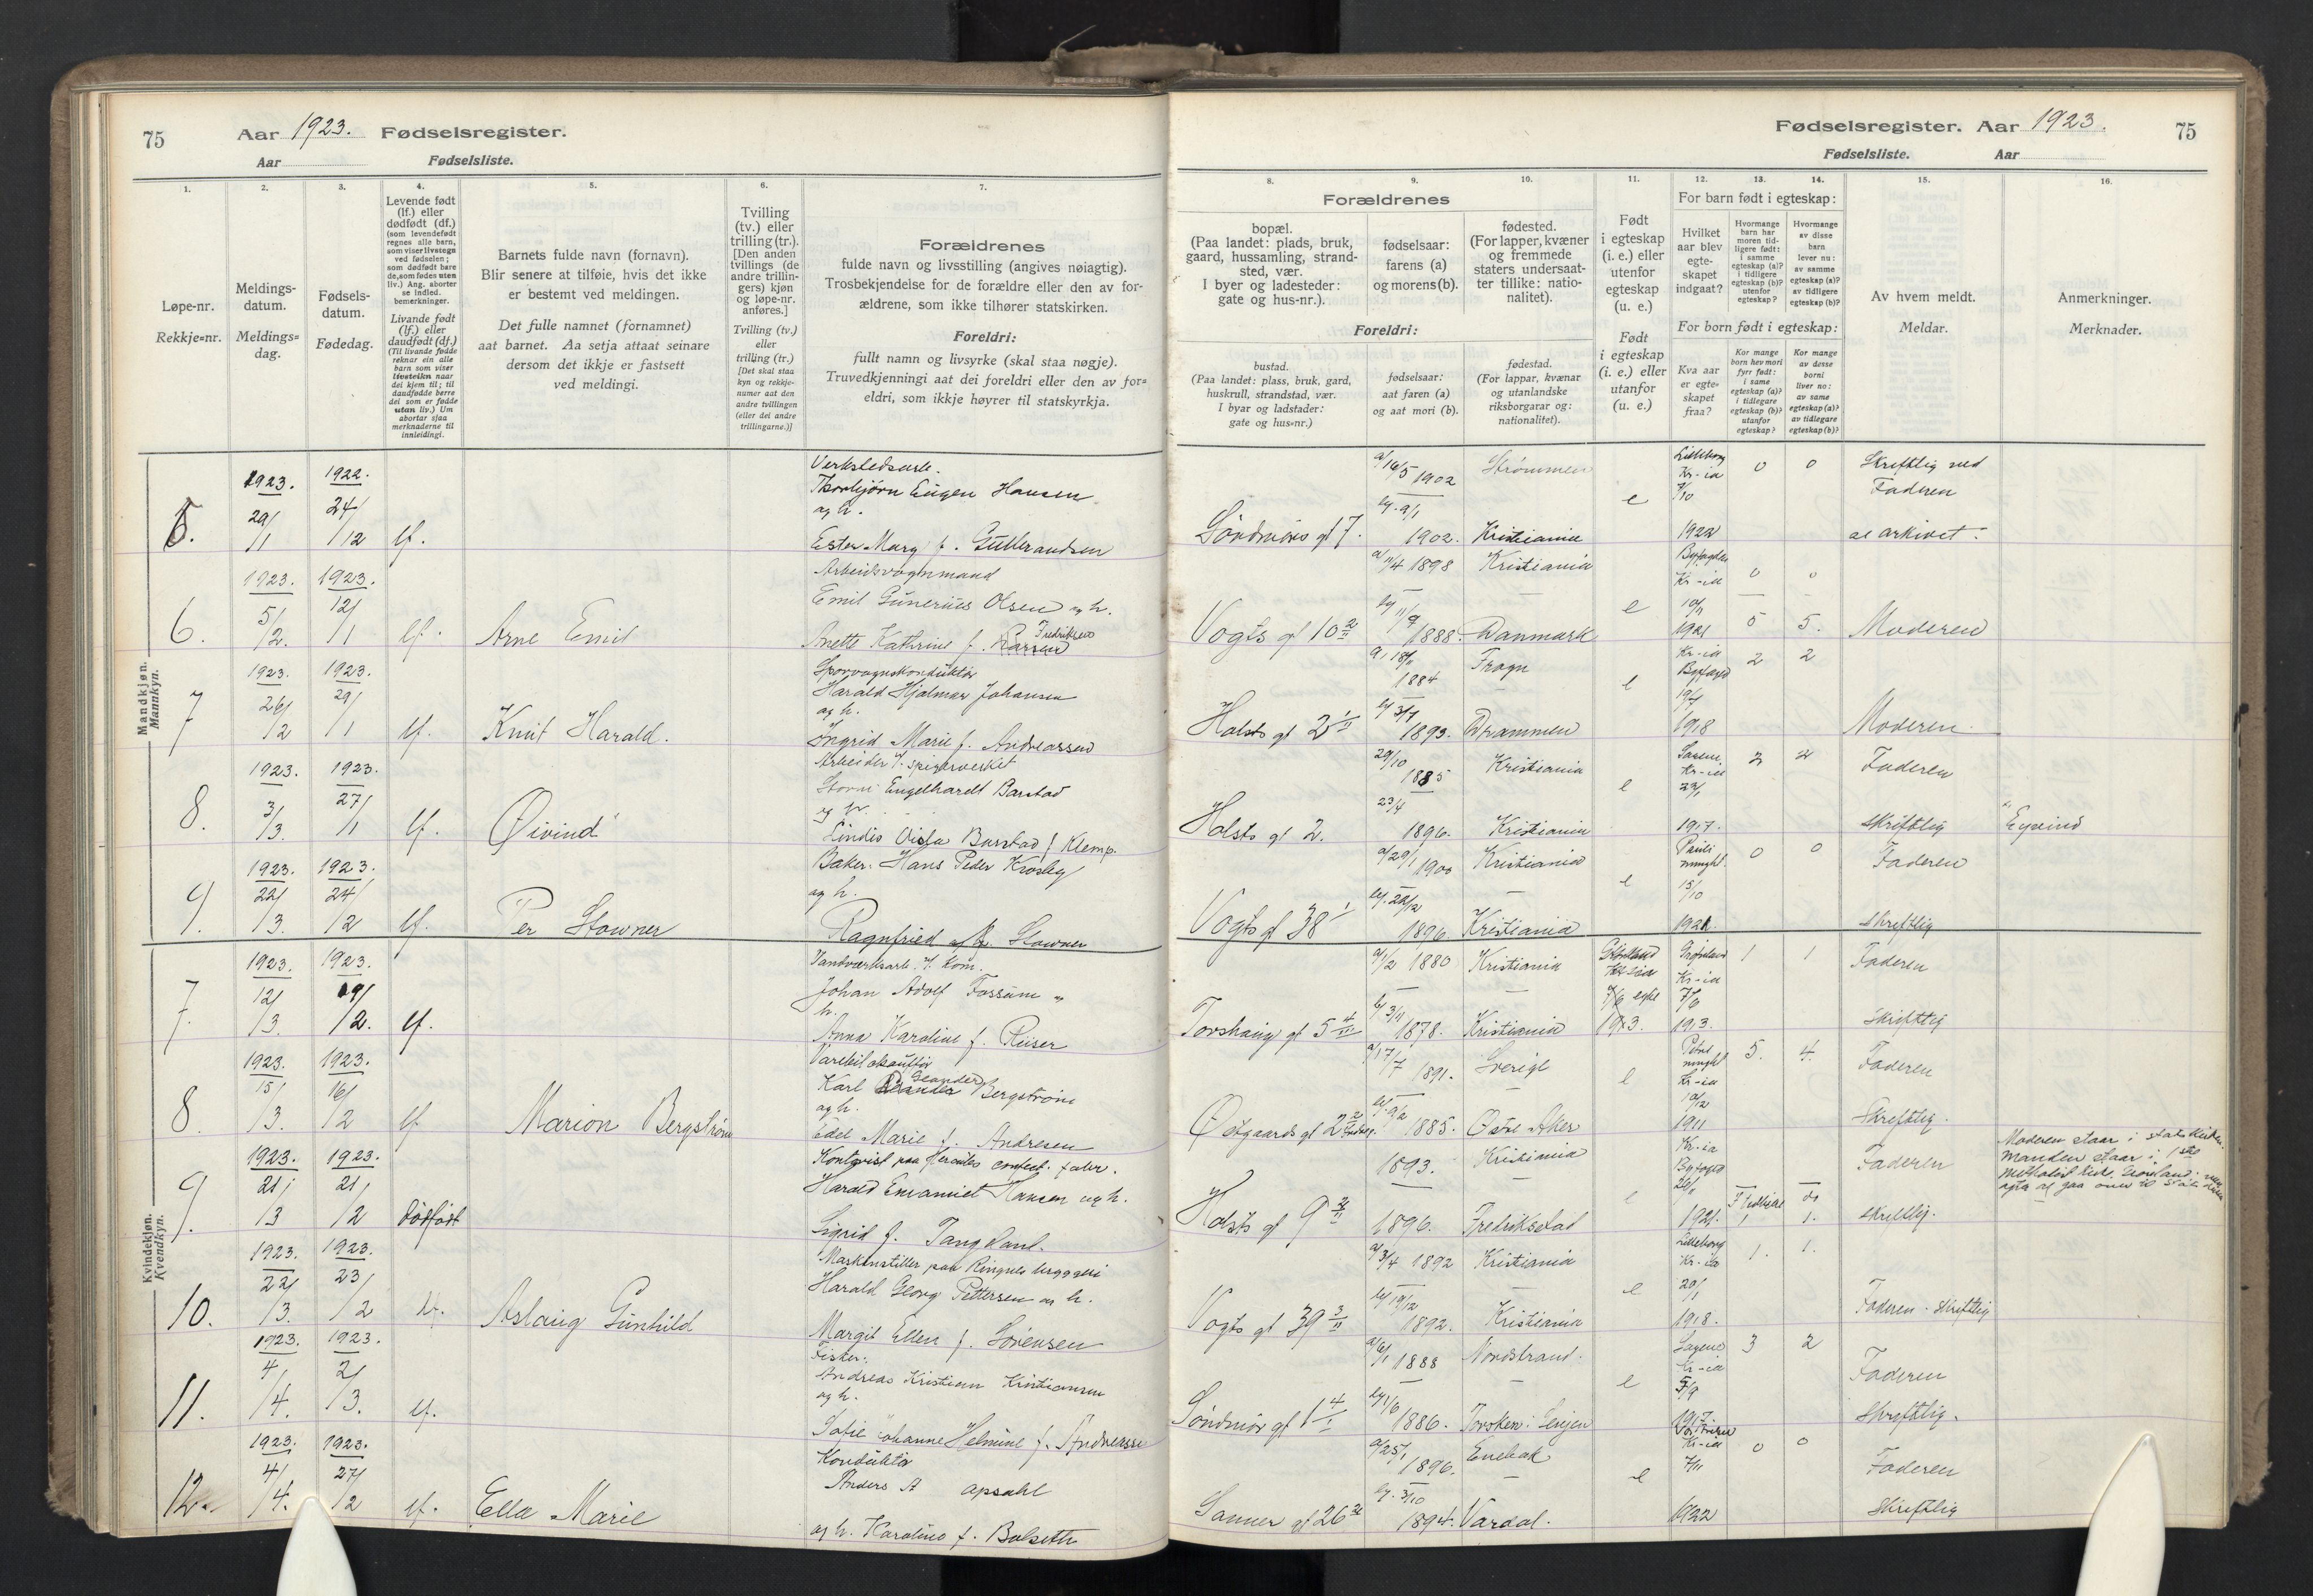 75
Aar 1923. Fødselsregister.
Aar
Fødselsliste.
1.
2.
3.
4.
5.
6.
7.
Løpe-nr.
Rekkje=nr.
Meldings-
datum.
Meldings=
dag.
Fødsels-
datum.
Fødedag.
Levende født
(lf.) eller
dødfødt (df.)
(som levendefødt
regnes alle barn,
som viser livstegn
ved fødselen;
som dødfødt bare
de, som fødes uten
liv.) Ang. aborter
se indled.
bemerkninger.
Livande født
(lf.) eller
daudfødt (df.)
(Til livande fødde
reknar ein alle
barn som viser
livsteikn naar
dei kjem til; til
daudfødde berre
dei som er fødde
utan liv.) Um
abortar sjaa
merknaderne til
innleidingi.
Barnets fulde navn (fornavn).
Blir senere at tilføie, hvis det ikke
er bestemt ved meldingen.
Det fulle namnet (fornamnet)
aat barnet. Aa setja attaat seinare
dersom det ikkje er fastsett
ved meldingi.
Tvilling
(tv.) eller
trilling (tr.).
[Den anden
tvillings (de
andre trillin-
gers) kjøn
og løpe-nr.
anføres.]
Tvilling (tv.)
eller
trilling (tr.)
[Det skal staa
kyn og rekkje-
numer aat den
andre tvillingen
(eller dei andre
trillingarne.)]
Forældrenes
fulde navn og livsstilling (angives nøiagtig).
Trosbekjendelse for de forældre eller den av for-
ældrene, som ikke tilhører statskirken.
Foreldri:
fullt namn og livsyrke (skal staa nøgje).
Truvedkjenningi aat dei foreldri eller den av for=
eldri, som ikkje høyrer til statskyrkja.
Mandkjøn.
Mannkyn.
5.
1923.
29/1
1922.
24/12
lf.
Thorbjørn Eugen Hansen
og h.
Ester Marg f. Gulbrandsen
6.
1923.
5/2.
1923.
12/1
lf.
Arne Emil
Arbeidsvognmand
Emil Gunerius Olsen og h.
Fredriksen
Anette Kathrine f.
7
1923.
26/2
1923.
29/1
lf.
Knut Harald.
Sporvognskonduktør
Harald Hjalmar Johansen
og h.
Ingrid Marie f. Andreassen
8.
1923.
3/3.
1923.
27/1
lf.
Øivind
Arbeider v. spigerverket
Storm Engelhardt Barstad
og h.
Barstad f Klemp.
9.
1923.
22/3.
1923.
24/2
lf.
Per Stowner
Baker: Hans Peder Krosby
og h.
Ragnfried f. Stowner
Kvindekjøn.
Kvendkyn.
7.
1923.
12/3.
1923.
19/2.
lf.
Johan Adolf Fossum og
h.
Anna Karoline f. Riiser
8.
1923.
15/3.
1923.
16/2
lf
Marion Bergstrøm
Karl Leander Bergstrøm
og h.
Edel Marie f. Andresen
9.
1923.
21/3
1923.
21/2
dødfødt
Kontorist paa Hercules confect. fabr.
Harald Emanuel Hansen og h.
Sigrid f. Tangdahl.
10.
1923.
22/3.
1923.
23/2
lf.
Aslaug Gunhild
Maskinstiller paa Ringnes bryggeri
Harald Georg Pettersen og h.
Margit Ellen f. Sørensen
11.
1923.
4/4.
1923.
2/3.
lf.
Fisker.
Andreas Kristian Kristiansen
og h.
Sofie Johanne Helmine f. Andreasse
12.
1923.
4/4.
1923.
27/2
lf.
Ella Marie
Konduktør
Anders A apsahl
og h. Karoline f. Bolseth
Fødselsregister. Aar 1923.
75
Fødselsliste.
Aar
8.
9.
10.
11.
12.
13.
14.
15.
16.
Forældrenes
bopæl.
(Paa landet: plads, bruk,
gaard, hussamling, strand-
sted, vær.
I byer og ladesteder:
gate og hus-nr.).
fødselsaar:
farens (a)
og morens (b).
fødested.
(For lapper, kvæner
og fremmede
staters undersaat-
ter tillike: natio-
nalitet).
Foreldri:
bustad.
(Paa landet: plass, bruk, gard,
huskrull, strandstad, vær.
I byar og ladstader:
gate og hus=nr.)
fødselsaar:
aat faren (a)
og aat mori (b).
fødestad.
(For lappar, kvænar
og utanlandske
riksborgarar og:
nationalitet).
Født
i egteskap
(i. e.) eller
utenfor
egteskap
(u. e.)
Født
i egteskap
(i. e.) eller
utanfor
(u. e.)
For barn født i egteskap:
Hvilket
aar blev
egte-
skapet
indgaat?
Hvormange
barn har
moren tid-
ligere født:
i samme
egteskap (a)?
i tidligere
egteskap (b)?
utenfor
egteskap?
Hvormange
av disse
barn
lever nu:
av samme
egteskap (a)?
av tidligere
egteskap (b)?
For born født i egteskap:
Kva aar
er egte-
skapet
fraa?
Kor mange
born hev mori
fyrr født:
i same
egteskap (a)?
i tidlegare
egteskap (b)?
utanfor
egteskap?
Kor mange
av desse
borni
liver no:
av same
egteskap (a)?
av tidlegare
egteskap (b)?
Av hvem meldt.
Meldar.
Anmerkninger.
Merknader.
Søndmørs gt 7.
a/16/5 1902
9/1
1902.
Strømmen
Kristiania
e
Lilleborg
Kr-ia
1922
0
0
Skriftlig ved
Faderen
arkivet.
Vogts gt 10 2/II
11/4 1898
1888.
Kristiania
Danmark
e
Byfogden
Kr-ia
1921
0
0
5
5.
Moderen
Holsts gt 2 1/II
1884
3/7
1893.
Frogn
Drammen
e
Kr-ia
Byfogd
1918
2
2
Moderen.
Holsts gt 2.
29/10
1885
23/4
1896.
Kristiania
Kristiania
e
Sagene
Kr-ia
1917.
2
Faderen
skriftlig
"Eyvind
Vogts gt 38
a/29/1 1900
1896.
Kristiania
Kristiania
e
Pauli
15/10
1921.
0
0
Faderen
skriftlig
Torshaug gt 5 4/III
1880
3/11
1878.
Kristiania
Kristiania
Kr-ia
1913.
Grønland
Kr-ia
7/6
1913.
1
1
Faderen
Skriftlig
Østgaards gt 2
a/17/7 1891.
1885.
Sverige
Østre Aker
e
Petrus
Kr-ia
1911
5.
4.
Faderen
Skriftlig.
Holsts gt 9
1893.
1896.
Kristiania
Fredrikstad
e
Kr-ia
Byfogd
1921.
1
1.
Faderen
skriftlig.
Moderen staar i statskirken.
Manden staar i 1ste
Methodist kirk. Grønland.
Vogts gt 39 3/II
a/3/4 1892
19/12
1892.
Kristiania
Kristiania
e
Lilleborg
Kr-ia
1918.
1.
1.
Faderen. skriftlig
Søndmør gt 1 4/I
1888
1886.
Nordstrand.
Torsken i Senjen
e
Sagene
Kr-ia
1917.
3
2
Faderen
Skriftlig.
Sanner gt 26
a/25/1
1896.
3/10
1894.
Enebak
Vardal.
e
Kr-ia
7/11
1922
0
0
Faderen
skriftlig